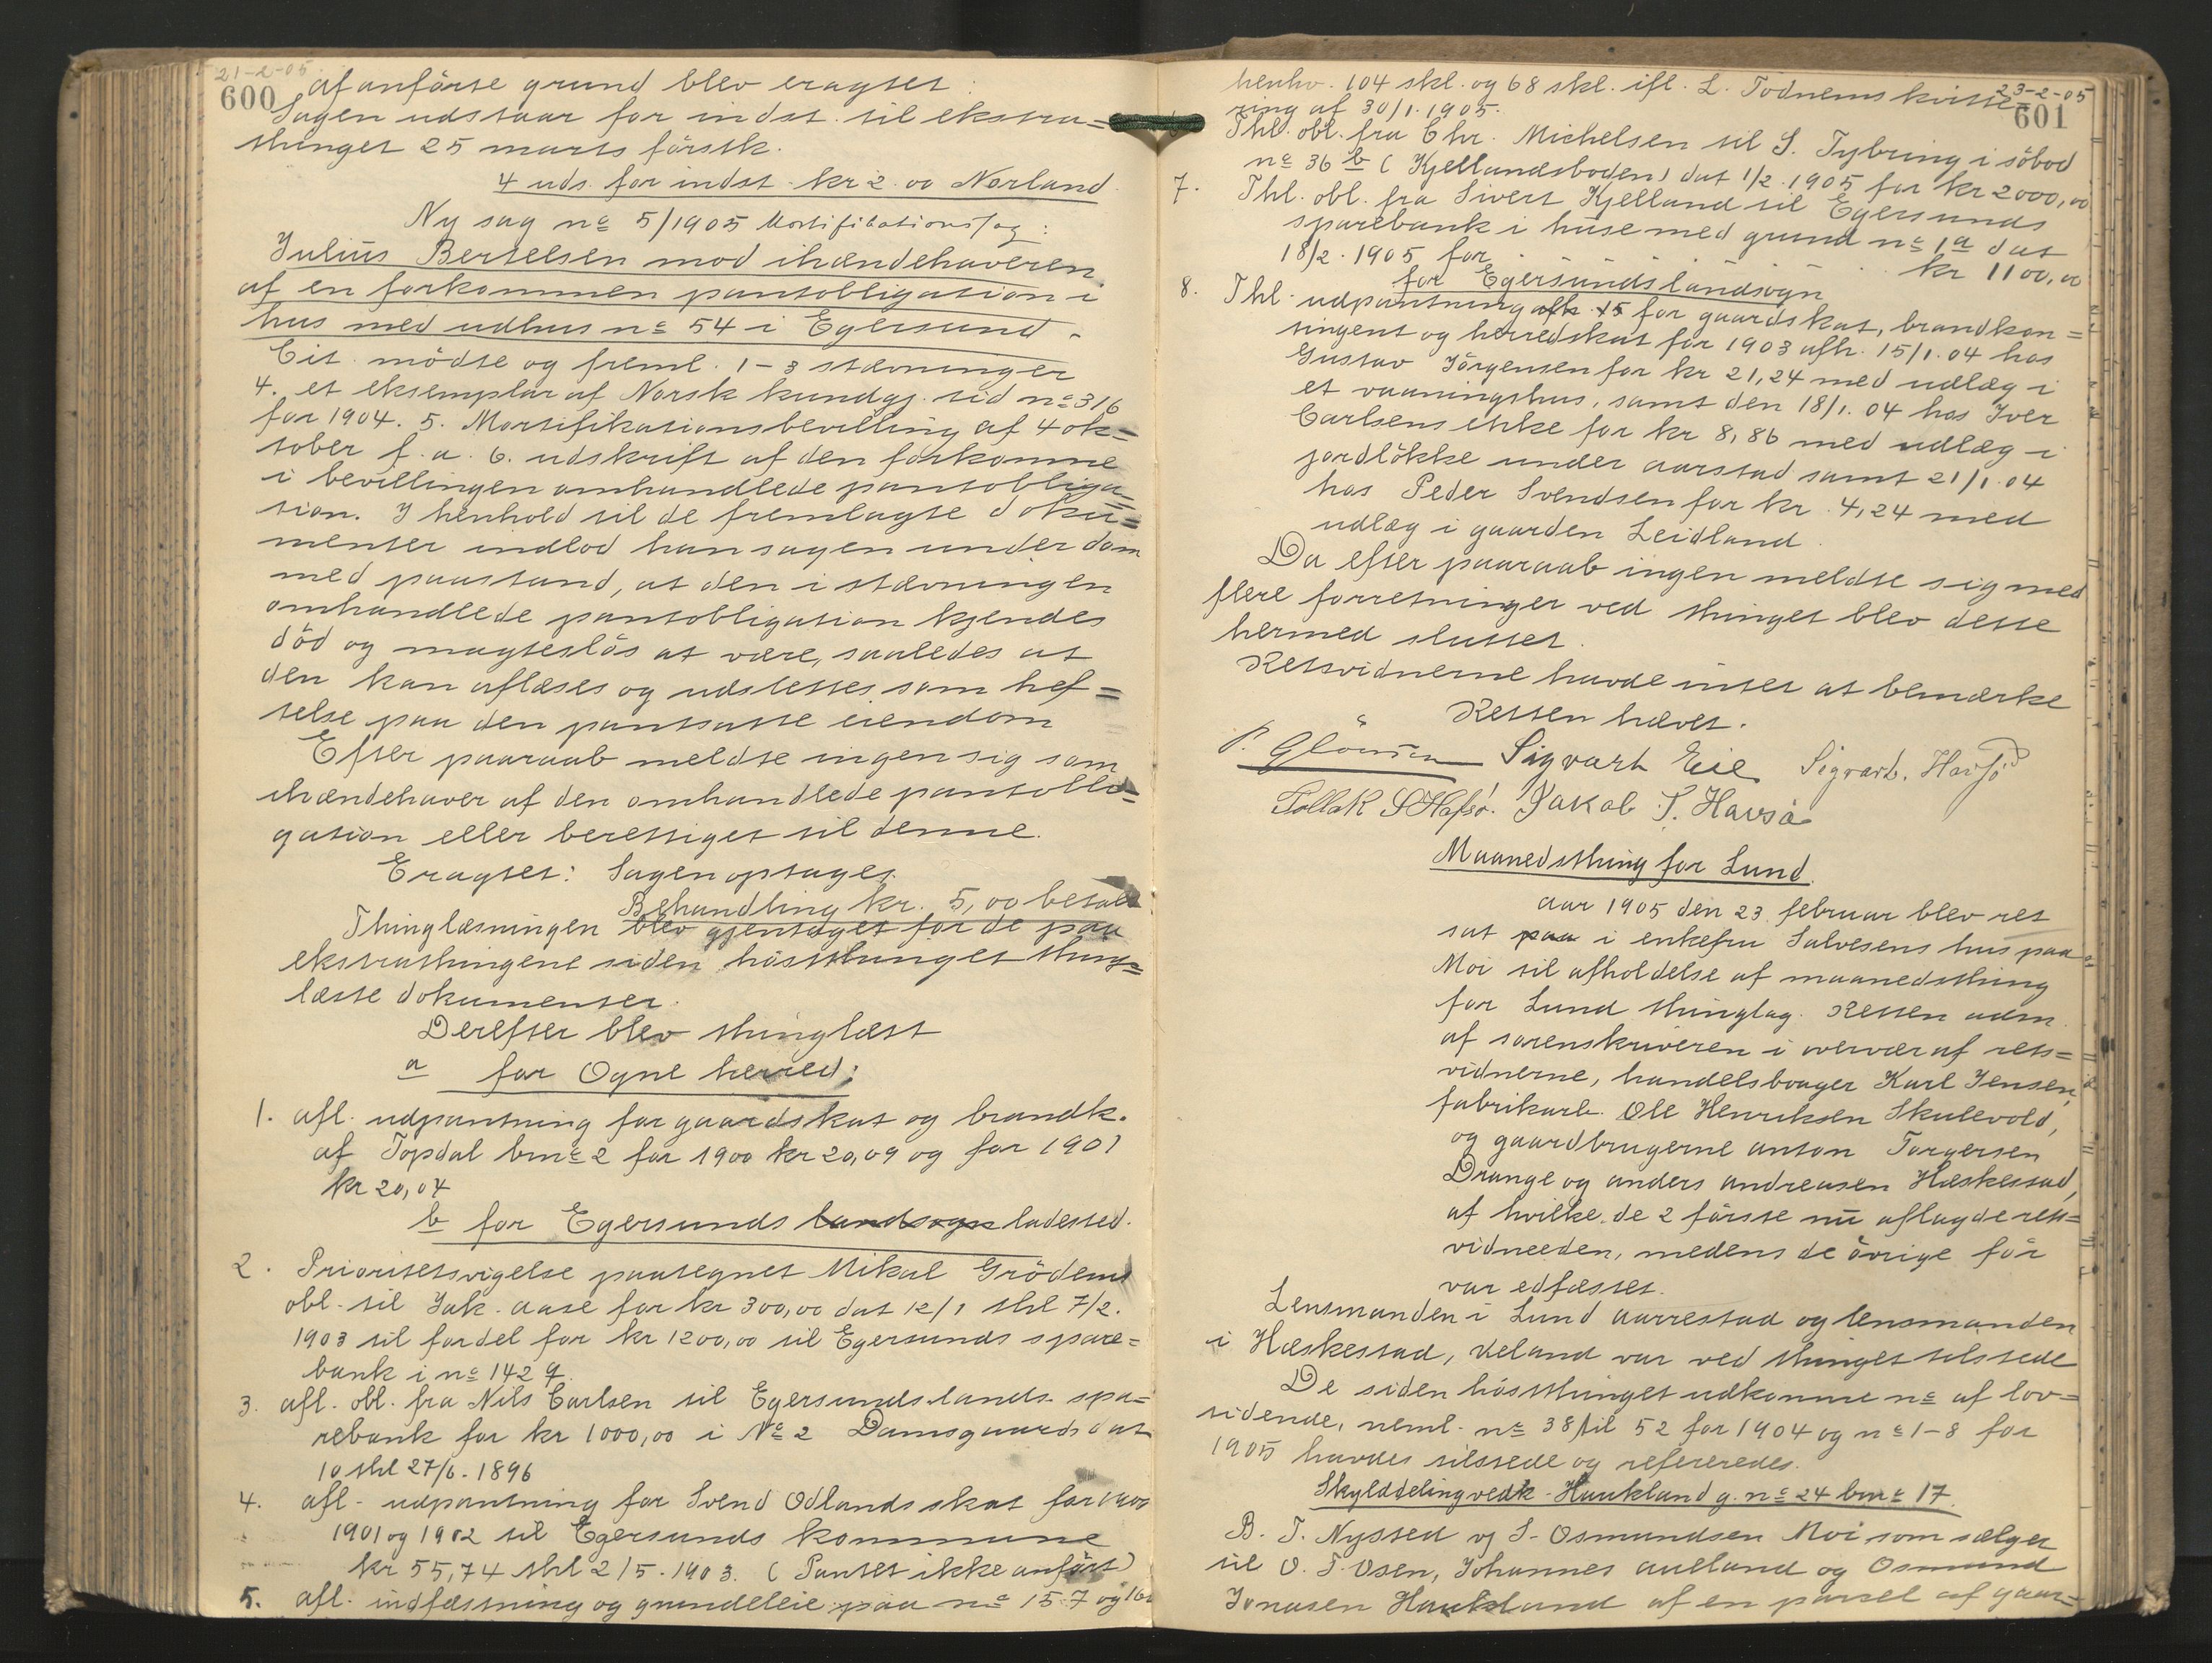 21-2-05
600
af anförte grund blev eragtet:
Sagen udstaar for indst. til ekstra=
thinget 25 marts förstk.
4 uds. for indst. kr 2.00 Norland
Ny sag no 5/1905 Mortifikationssag:
Julius Bertelsen mod ihændehaveren
af en forkommen pantobligation i
hus med udhus no 54 i Egersund.
Cit. mödte og freml. 1-3 stævninger
4. et eksemplar af Norsk kundgj. tid no 316
for 1904. 5. Mortifikationsbevilling af 4 ok=
tober f. a. 6. udskrift af den forkomne
i bevillingen omhandlede pantobliga=
tion. I henhold til de fremlagte doku=
menter indlod han sagen under dom
med paastand, at den i stævningen
omhandlede pantobligation kjendes
död og magteslös at være, saaledes at
den kan aflæses og udslettes som hef=
telse paa den pantsatte eiendom
Efter paaraab meldte ingen sig som
ihændehaver af den omhandlede pantobli=
gation eller berettiget til denne.
Eragtet: Sagen optages.
Behandling kr. 5,00 betalt
Thinglæsningen blev gjentaget for de paa
ekstrathingene siden höstthinget thing=
læste dokumenter.
Derefter blev thinglæst
a for Ogne herred:
1. afl. udpantning for gaardskat og brandk.
af Topdal bno 2 for 1900 kr 20,09 og for 1901
kr 20,04
b for Egersunds landsogn ladested.
2. Prioritetsvigelse paategnet Mikal Grödems
obl. til Jak. Aase for kr 300,00 dat 12/1 thl 7/2.
1903 til fordel for kr 1200,00 til Egersunds spare=
bank i no 142 q.
3. afl. obl. fra Nils Carlsen til Egersunds lands. spa=
rebank for kr 1000,00 i No 2 Damsgaards dat
10 thl 27/6. 1896
4. afl. udpantning for Svend Odlands skat for 1900
1901 og 1902 til Egersunds kommune
kr 55,74 thl 2/5.1903. (Pantet ikke anfört)
5. afl. indfæstning og grundleie paa no 157 og 160
23-2-05
601
henhv. 104 skl. og 68 skl. ifl. L. Tödnems kvitte=
ring af 30/1.1905.
6. Thl. obl. fra Chr. Michelsen til S. Tybring i söbod
no 36 b (Kjellandsboden) dat 1/2.1905 for kr 2000,00
7. Thl. obl. fra Sivert Kjelland til Egersunds
sparebank i huse med grund no 1a dat
18/2.1905 for kr 1100,00
for Egersunds landsogn
8. Thl. udpantning afh. 15 for gaardskat, brandkon=
tingent og herredskat for 1903 afh. 15/1.04 hos
Gustav Jörgensen for kr 21,24 med udlæg i
et vaaningshus, samt den 18/1.04 hos Iver
Carlsens enke for kr 8,86 med udlæg i
jordlökke under Aarstad samt 21/1.04
hos Peder Svendsen for kr. 4,24 med
udlæg i gaarden Leidland.
Da efter paaraab ingen meldte sig med
flere forretninger ved thinget blev dette
hermed sluttet.
Retsvidnerne havde intet at bemærke
Retten hævet.
Sigvart Eie Sigvart. Havsö
Tollak S Hafsö. Jakob T. Havsö
Maanedsthing for Lund.
Aar 1905 den 23. februar blev ret
sat paa i enkefru Salvesens hus paa
Moi til afholdelse af maanedsthing
for Lund thinglag. Retten adm.
af sorenskriveren i overvær af rets=
vidnerne, handelsboager Karl Jensen,
fabrikarb. Ole Henriksen Skulevold,
og gaardbrugerne Anton Torgersen
Drange og Anders Andreasen Hæskestad,
af hvilke de 2 förste nu aflagde rets=
vidneeden, medens de övrige för
var edfæstet.
Lensmanden i Lund Aarrestad og lensmanden
i Hæskestad, Veland var ved thinget tilstede
De siden höstthinget udkomne no af lov=
tidende, neml. no 38 til 52 for 1904 og no 1-8 for
1905 havdes tilstede og refereredes.
Skylddeling vedk. Haukland g. no 24 bno 17.
B. T. Nysted og S. Osmundsen Moi som sælger
til O. T. Osen, Johannes Aalland og Osmund
Jonasen Haukland af en parsel af gaar=